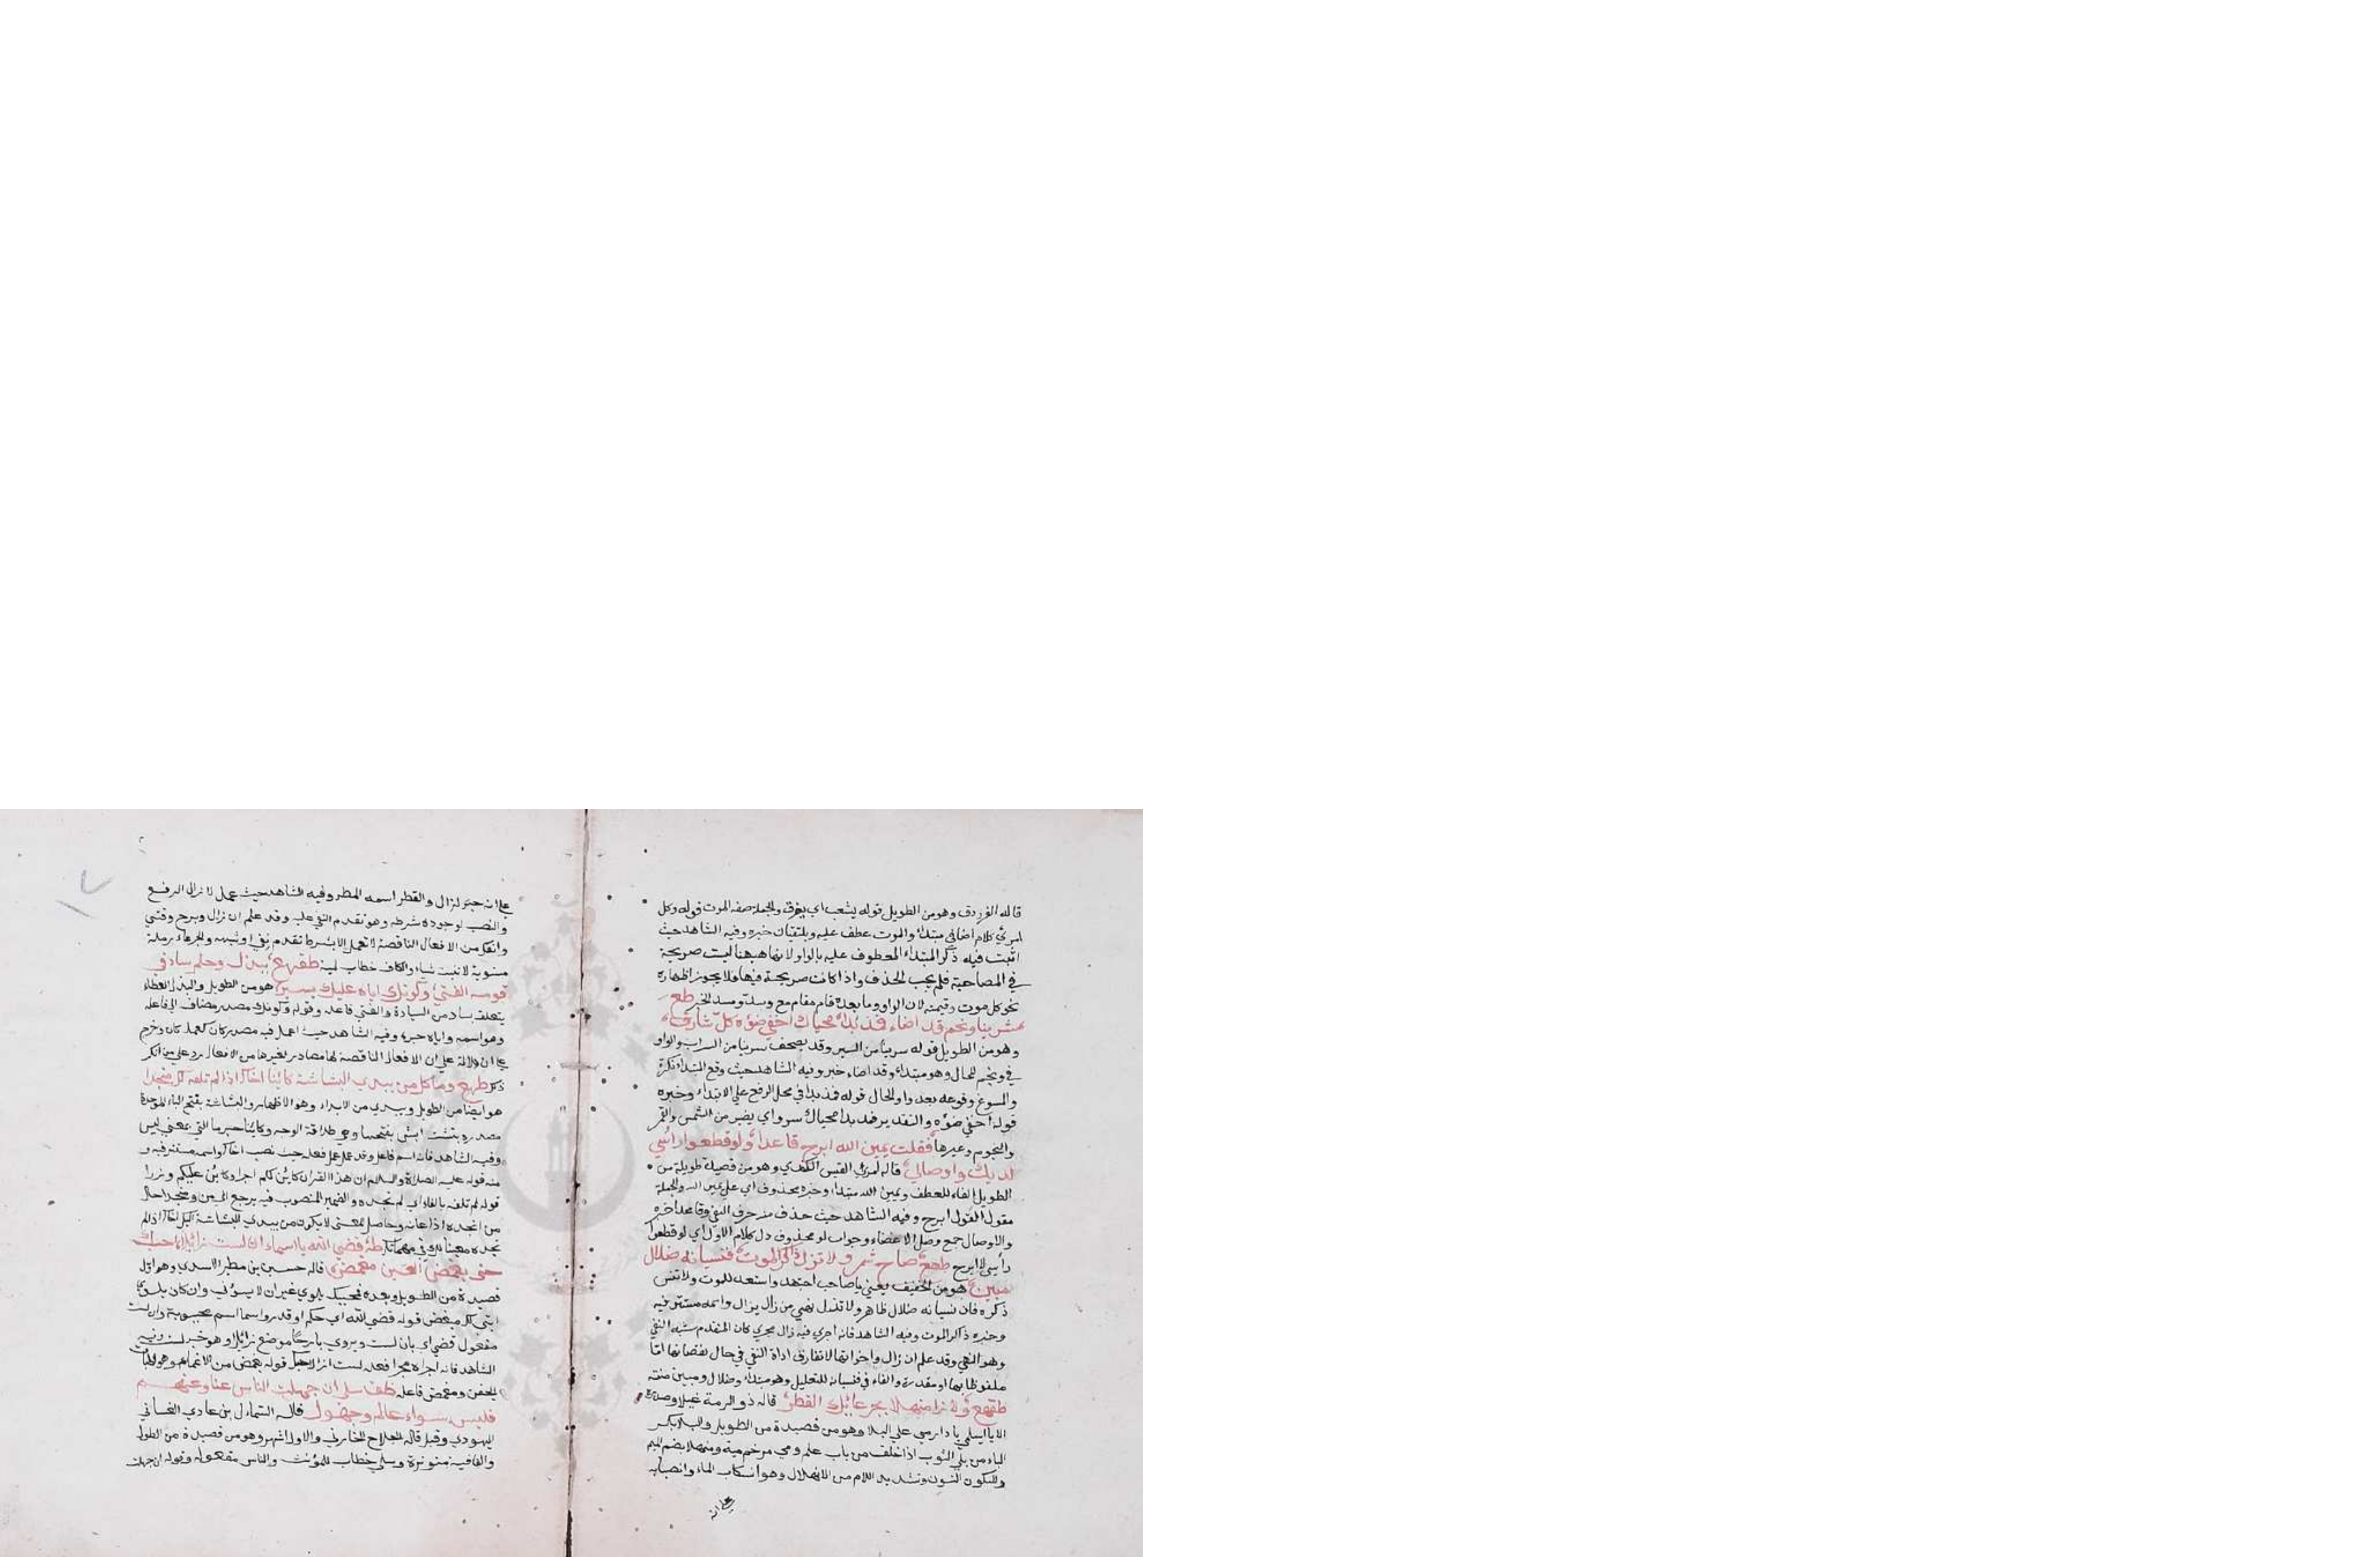 قاله الفرزدق وهو من الطويل قوله يشعب اي يفرق والجملة صفة الموت قوله وكل
امرئ كلام اضافي مبتداء والموت عطف عليه ويلتقيان خبره وفيه الشاهد حيث
اثبت فيه ذكر المبتداء المعطوف عليه بالواو لانها ههنا ليست صريحة
في المصاحبة فلم يجب الحذف واذا كانت صريحة فيها فلا يجوز اظهاره
نحو كل موت وقيمته لان الواو وما بعدها قام مقام مع وسد مسد الخبر طع
سرينا ونجم قد اضاء فمذ بدا محياك اخفي ضوءه كل شارف
وهو من الطويل قوله سرينا من السير وقد يصحف سربنا من السرب والواو
في ونجم للحال وهو مبتداء وقد اضاء خبره وفيه الشاهد حيث وقع المبتداء نكرة
والمسوغ وقوعه بعد واو الحال قوله فمذ بدا في محل الرفع علي الابتداء وخبره
قوله اخفي ضوءه والتقدير فمذ بدا محياك سرو اي يضير من الشمس والقمر
والنجوم وغيرها فقلت يمين الله ابرح قاعدا ولو قطعوا راسي
لديك واوصالي قاله امرئ القيس الكندي وهو من قصيدة طويلة من
الطويل الفاء للعطف ويمين الله مبتداء وخبره محذوف اي علي يمين الله والجملة
مقول القول ابرح وفيه الشاهد حيث حذف منه حرف النفي وقاعدا خبره
والاوصال جمع وصل الاعضاء وجواب لو محذوف دل كلام الاول اي لو قطعوا
راسي لا ابرح طهع صاح شمر ولا تزل ذاكر الموت فنسيانه ضلال
مبين هو من الخفيف يعني يا صاحب اجتهد واستعد للموت ولا تنس
ذكره فان نسيانه ضلال ظاهر ولا تزل نهي من زال يزال واسمه مستتر فيه
وخبره ذاكر الموت وفيه الشاهد فانه اجري فيه زال مجري كان المتقدم شبه النفي
وهو النهي وقد علم ان زال واخواتها لا تفارق اداة النفي في حال نقصانها اما
ملفوظا بها او مقدرة والفاء في فنسيانه للتعليل وهو مبتداء وضلال ومبين صفته
طقهع ولا زال منهلا بجرعائك القطر قاله ذو الرمة غيلان وصدره
الا يا اسلمي يا دار مي علي البلا وهو من قصيدة من الطويل والبلا بكسر
الباء من بلي الثوب اذا خلق من باب علم ومي مرخم مية ومنهلا بضم الميم
وسكون النون وتشديد اللام من الانهلال وهو انسكاب الماء وانصبابه
علي انه
علي انه خبر لزال والقطر اسمه المطر وفيه الشاهد حيث عمل لا زال الرفع
والنصب لوجوده شرطه وهو تقدم النفي عليه وقد علم ان زال وبرح وفتي
وانفك من الافعال الناقصة لا تعمل الا بشرط تقدم نفي او شبهه والجرعاء رملة
مستوية لا تنبت شيا والكاف خطاب لمية طقهع ببذل وحلم ساد في
قومه الفتي وكونك اياه عليك يسير هو من الطويل والبذل العطاء
يتعلق بساد من السيادة والفتي فاعله وقوله وكونك مصدر مضاف الي فاعله
وهو اسمه واياه خبره وفيه الشاهد حيث اعمل فيه مصدر كان كعمل كان وخرج
علي ان دلالة علي ان الافعال الناقصة لها مصادر لغيرها من الافعال رد علي من انكر
ذكر طهع وما كل من يبدي البشاشة كائنا اخاك اذا لم تلفه لك منجدا
هو ايضا من الطويل ويبدي من الابداء وهو الاظهار والبشاشة بفتح الباء الموحدة
مصدر بششت ابش بفتحها وهي طلاقة الوجه وكائنا خبر ما التي بمعني ليس
وفيه الشاهد فانه اسم فاعل وقد عمل عمل فعله حيث نصب اخاك واسمه مستتر فيه و
منه قوله عليه الصلاة والسلام ان هذا القران كائن لكم اجرا وكائن عليكم وزرا
قوله لم تلفه بالفاء اي لم تجده والضمير المنصوب فيه يرجع الي من ومنجدا حال
من انجده اذا اعانه وحاصل المعني لا يكون من يبدي البشاشة اليك اخاك اذا لم
تجده معينا لك في مهماتك طه قضي الله يا اسماء ان لست زائلا احبك
حتي يغمض العين مغمض قاله حسين بن مطير الاسدي وهو اول
قصيدة من الطويل وبعده فحبك بلوي غير ان لا يسرني وان كان بلوي
انني لك مبغض قوله قضي الله اي حكم او قدر واسما اسم محبوبته وان لست
مفعول قضي اي بان لست ويروي بارحا موضع زائلا وهو خبر لست وفيه
الشاهد فانه اجراه مجرا فعله لست ازال احبك قوله يغمض من الاغماض وهو اطباق
الجفن ومغمض فاعله طف سلي ان جهلت الناس عنا وعنهم
فليس سواء عالم وجهول قاله السماءل بن عادي الغساني
اليهودي وقيل قاله اللجلاج الحارثي والاول اشهر وهو من قصيدة من الطويل
والقافية متواترة وسلي خطاب للمونث والناس مفعوله وقوله ان جهلت